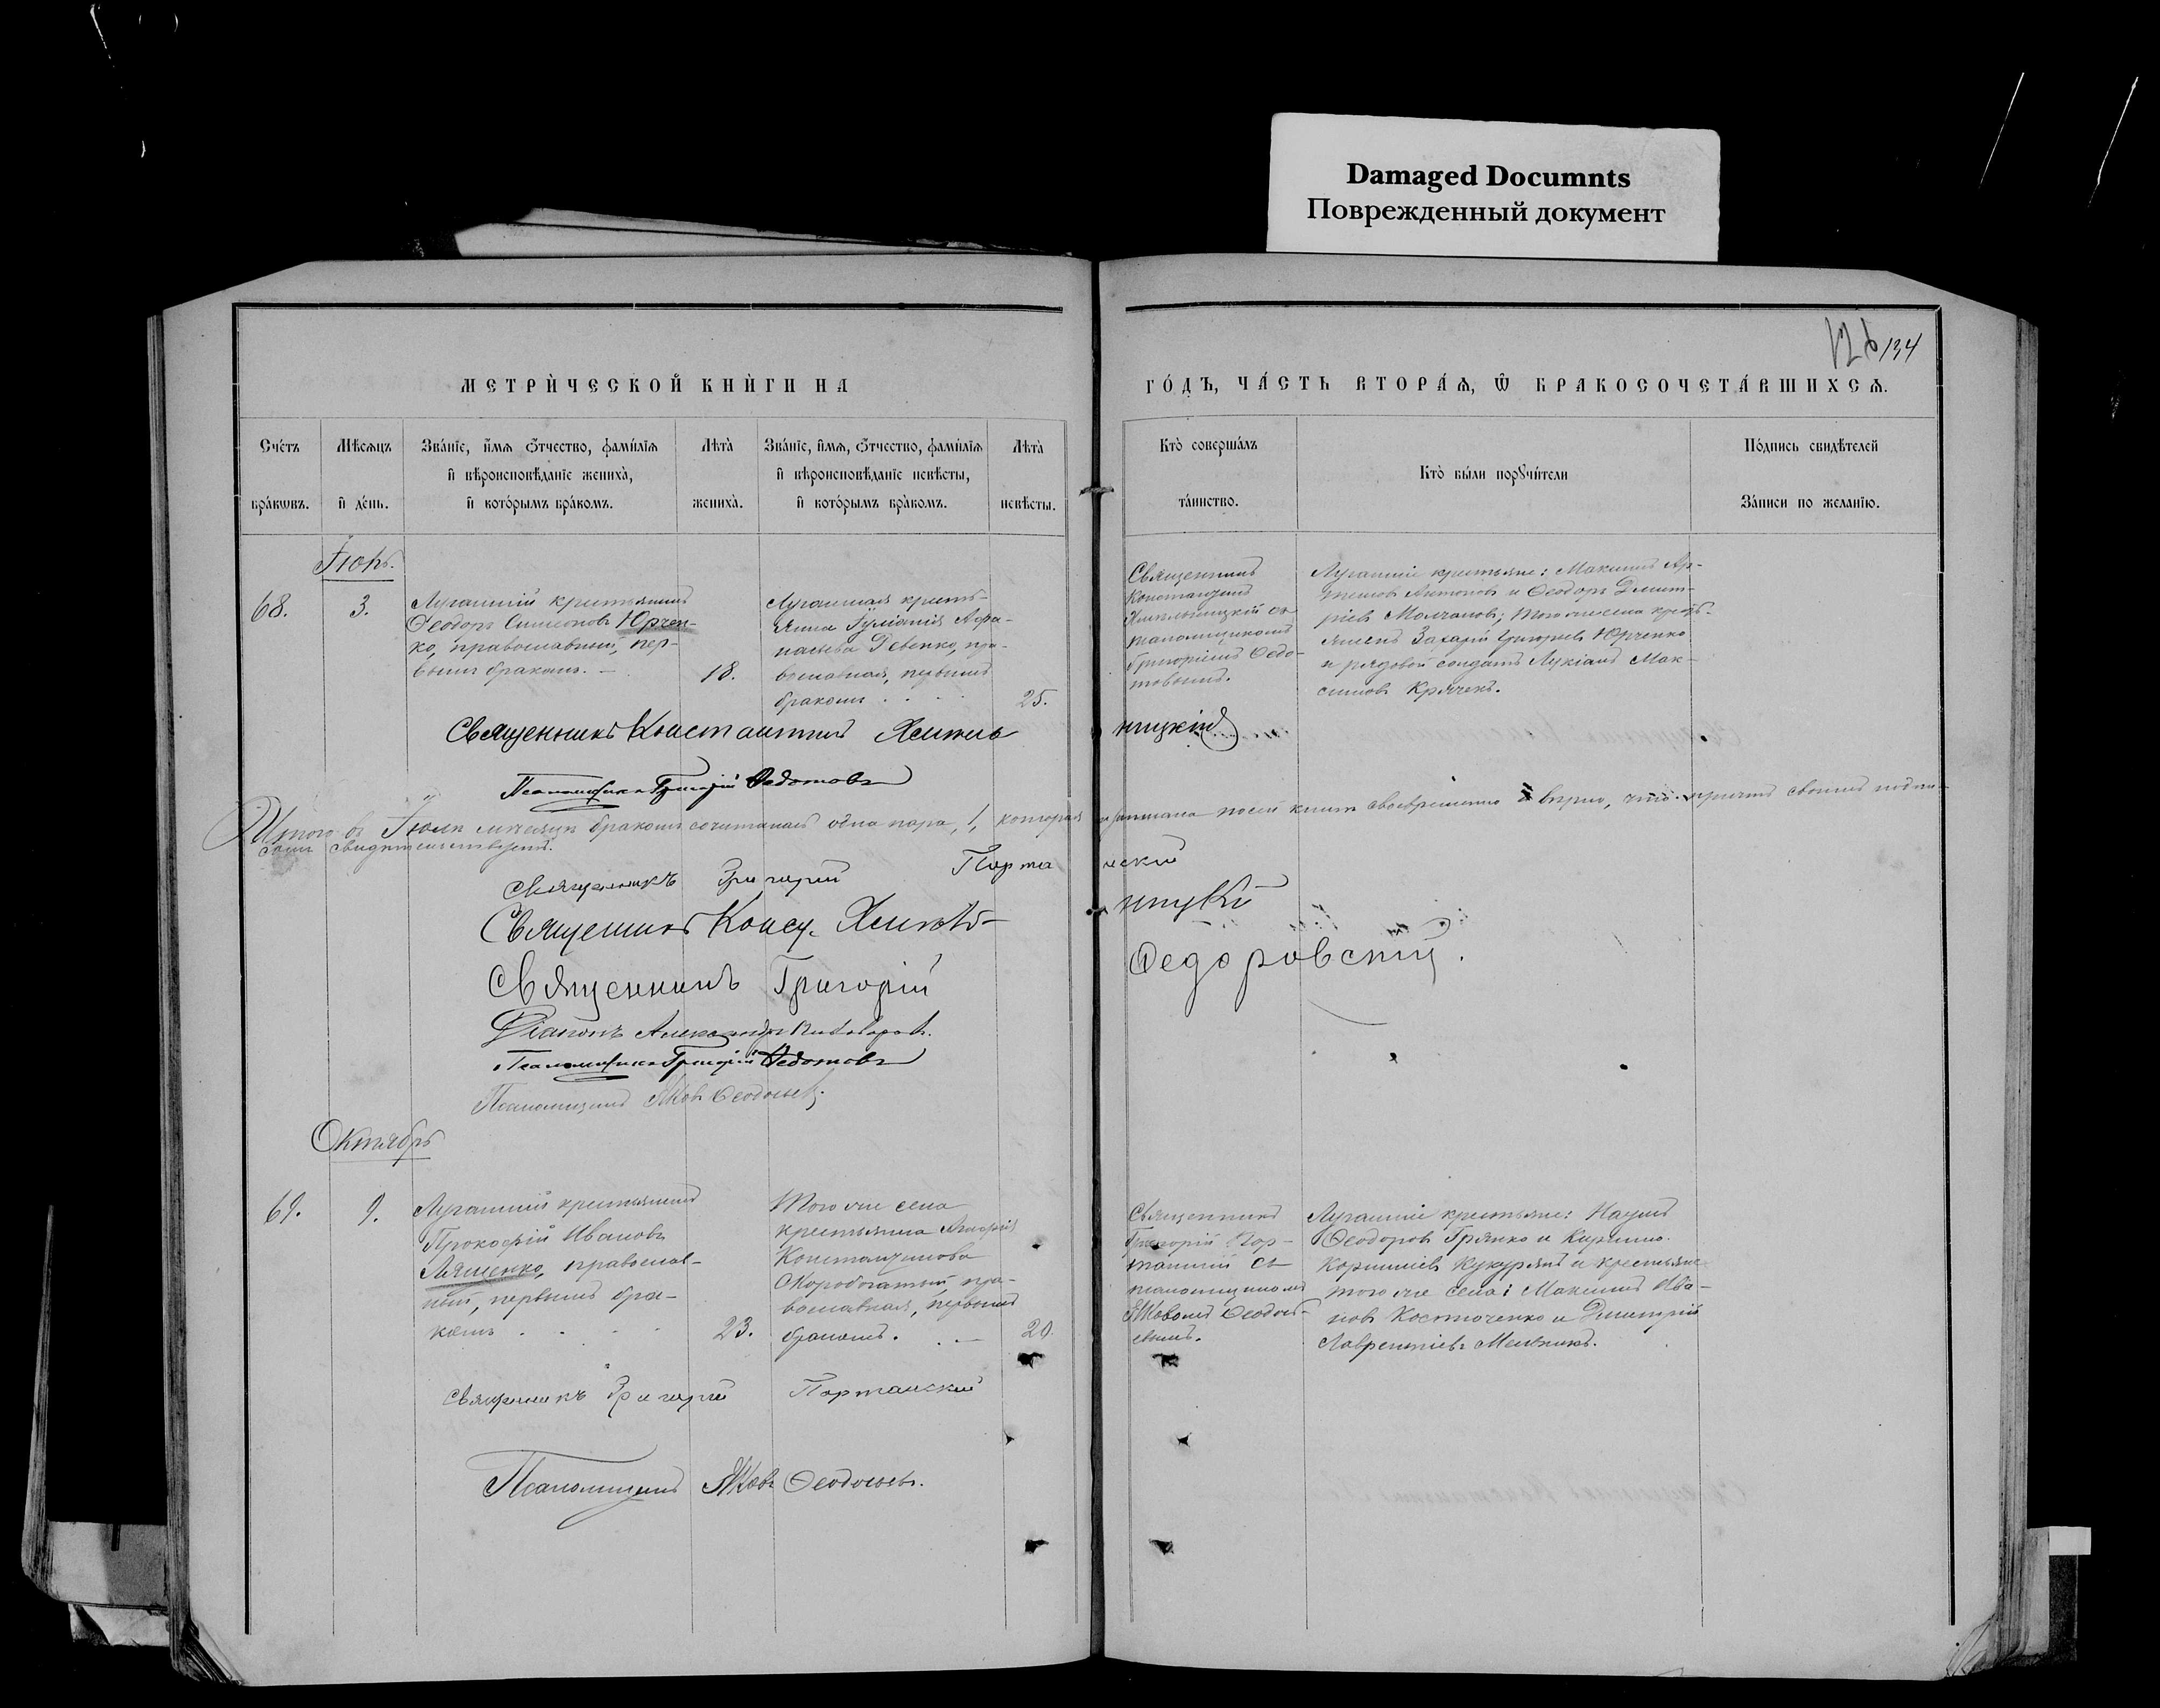 Damaged Documnts
Поврежденный документ
126 134
МЕТРИ́ЧЕСКОЙ КНИ́ГИ НА
ГО́ДЪ, ЧА́СТЬ ВТОРА́Ѧ, Ѿ БРАКОСОЧЕТА́ВШИХСѦ.
Сче́тъ бра́кѡвъ.
Мѣ́сѧцъ и҆ де́нь.
Зва́нїе, и҆́мѧ ѻ҆́тчество, фами́лїѧ
и҆ вѣроисповѣ́данїе жениха̀,
и҆ кото́рымъ бра́комъ.
Лѣта̀ жениха̀.
Зва́нїе, и҆́мѧ, ѻ҆́тчество, фами́лїѧ
и҆ вѣроисповѣ́данїе невѣ́сты,
и҆ кото́рымъ бра́комъ.
Лѣта̀ невѣ́сты.
Кто̀ соверша́лъ
та́инство.
Кто̀ бы́ли порꙋчи́тели
По́дпись свидѣ́телей
За́писи по жела́нїю.
Іюль.
68.
3.
Луганскій крестьянинъ
Ѳеодоръ Симеоновъ Юрчен-
ко, православный, пер-
вымъ бракомъ. —
18.
Луганская кресть-
янка Іуліанія Аѳа-
насьева Девенко, пра-
вославная, первымъ
бракомъ . . .
25.
Священникъ
Константинъ
Хмельницкій съ
псаломщикомъ
Григоріемъ Ѳедо-
товымъ.
Луганскіе крестьяне: Максимъ Ар-
Антоновъ и Ѳеодоръ Димит-
ріевъ Молчановъ; того же села кресть-
янинъ Захарій Григорьевъ Юрченко
и рядовой солдатъ Лукіанъ Мак-
симовъ Крячекъ.
Священникъ Константинъ Хмельницкій
Псаломщикъ Григорій Ѳедотовъ
Итого въ Іюлѣ мѣсяцѣ бракомъ сочиталась одна пара, 1, которая записана по сей книгѣ своевременно и вѣрно, что причтъ своимъ подпи-
сомъ свидѣтельствуетъ.
Священникъ Григорій Портанскій
Священникъ Конст. Хмельницкій
Священникъ Григорій Ѳедоровскій.
Діаконъ Александръ Пивоваровъ.
Псаломщикъ Григорій Ѳедотовъ
Псаломщикъ Яковъ Ѳеодосьевъ.
Октябрь
69.
9.
Луганскій крестьянинъ
Прокофій Ивановъ
Ляшенко, православ-
ный, первымъ бра-
комъ . . . .
23.
Того же села
крестьянка
Константинова
Скоробогатый, пра-
вославная, первымъ
бракомъ. . —
20.
Священникъ
Григорій Пор-
танскій съ
псаломщикомъ
Яковомъ Ѳеодось-
евымъ.
Луганскіе крестьяне: Наумъ
Ѳеодоровъ Грянко и Кириллъ
Корниліевъ и крестьяне
того же села: Максимъ Ива-
новъ Костюченко и Димитрій
Лаврентіевъ Мельникъ.
Священникъ Григорій Портанскій
Псаломщикъ Яковъ Ѳеодосьевъ.